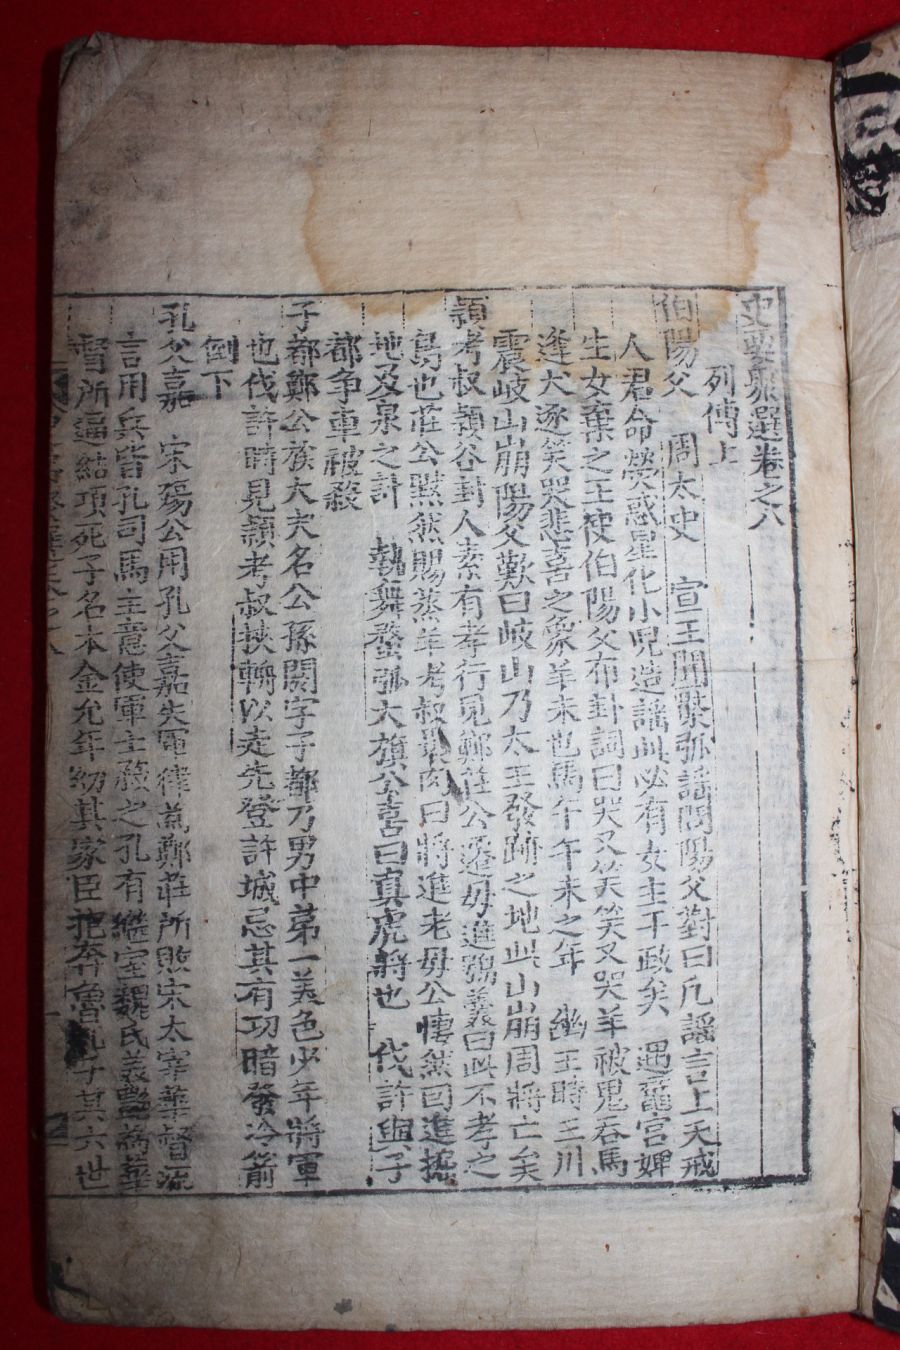 史要聚選卷之八
列傳上
伯陽父 周太史 宣王聞檿弧謠問陽父對曰凡謠言上天戒
人君命熒惑星化小兒造謠此必有女主干政矣 遇黿宮婢
生女棄之王使伯陽父布卦詞曰哭又笑笑又哭羊被鬼吞馬
逢犬逐笑哭悲喜之象羊未也馬午午未之年 幽王時三川
震岐山崩陽父歎曰岐山乃太王發跡之地此山崩周將亡矣
頴考叔頴谷封人素有孝行見鄭莊公遷母進鴞羹曰此不孝之
鳥也莊公默然賜蒸羊考叔褁肉曰將進老母公悽然回進掘
地及泉之計 執舞蝥弧大旗公喜曰真虎將也 伐許與子
都爭車被殺
子都鄭公族大夫名公孫閼字子都乃男中第一美色少年將軍
也伐許時見頴考叔挾輈以走先登許城忌其有功暗發冷箭
倒下
孔父嘉 宋殤公用孔父嘉失軍律為鄭莊所敗宋太宰華督流
言用兵皆孔司馬主意使軍士殺之孔有繼室魏氏美艷為華
督所逼結項死子名木金允年幼其家臣抱奔魯孔子其六世